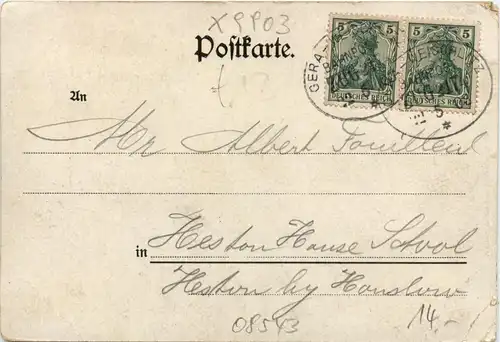 X9903
Postkarte.
5 5 5 5
DEUTSCHES REICH DEUTSCHES REICH
GERA-
An
Mr Albert
in Heston House School
Heston by Hounslow
08543
14,-